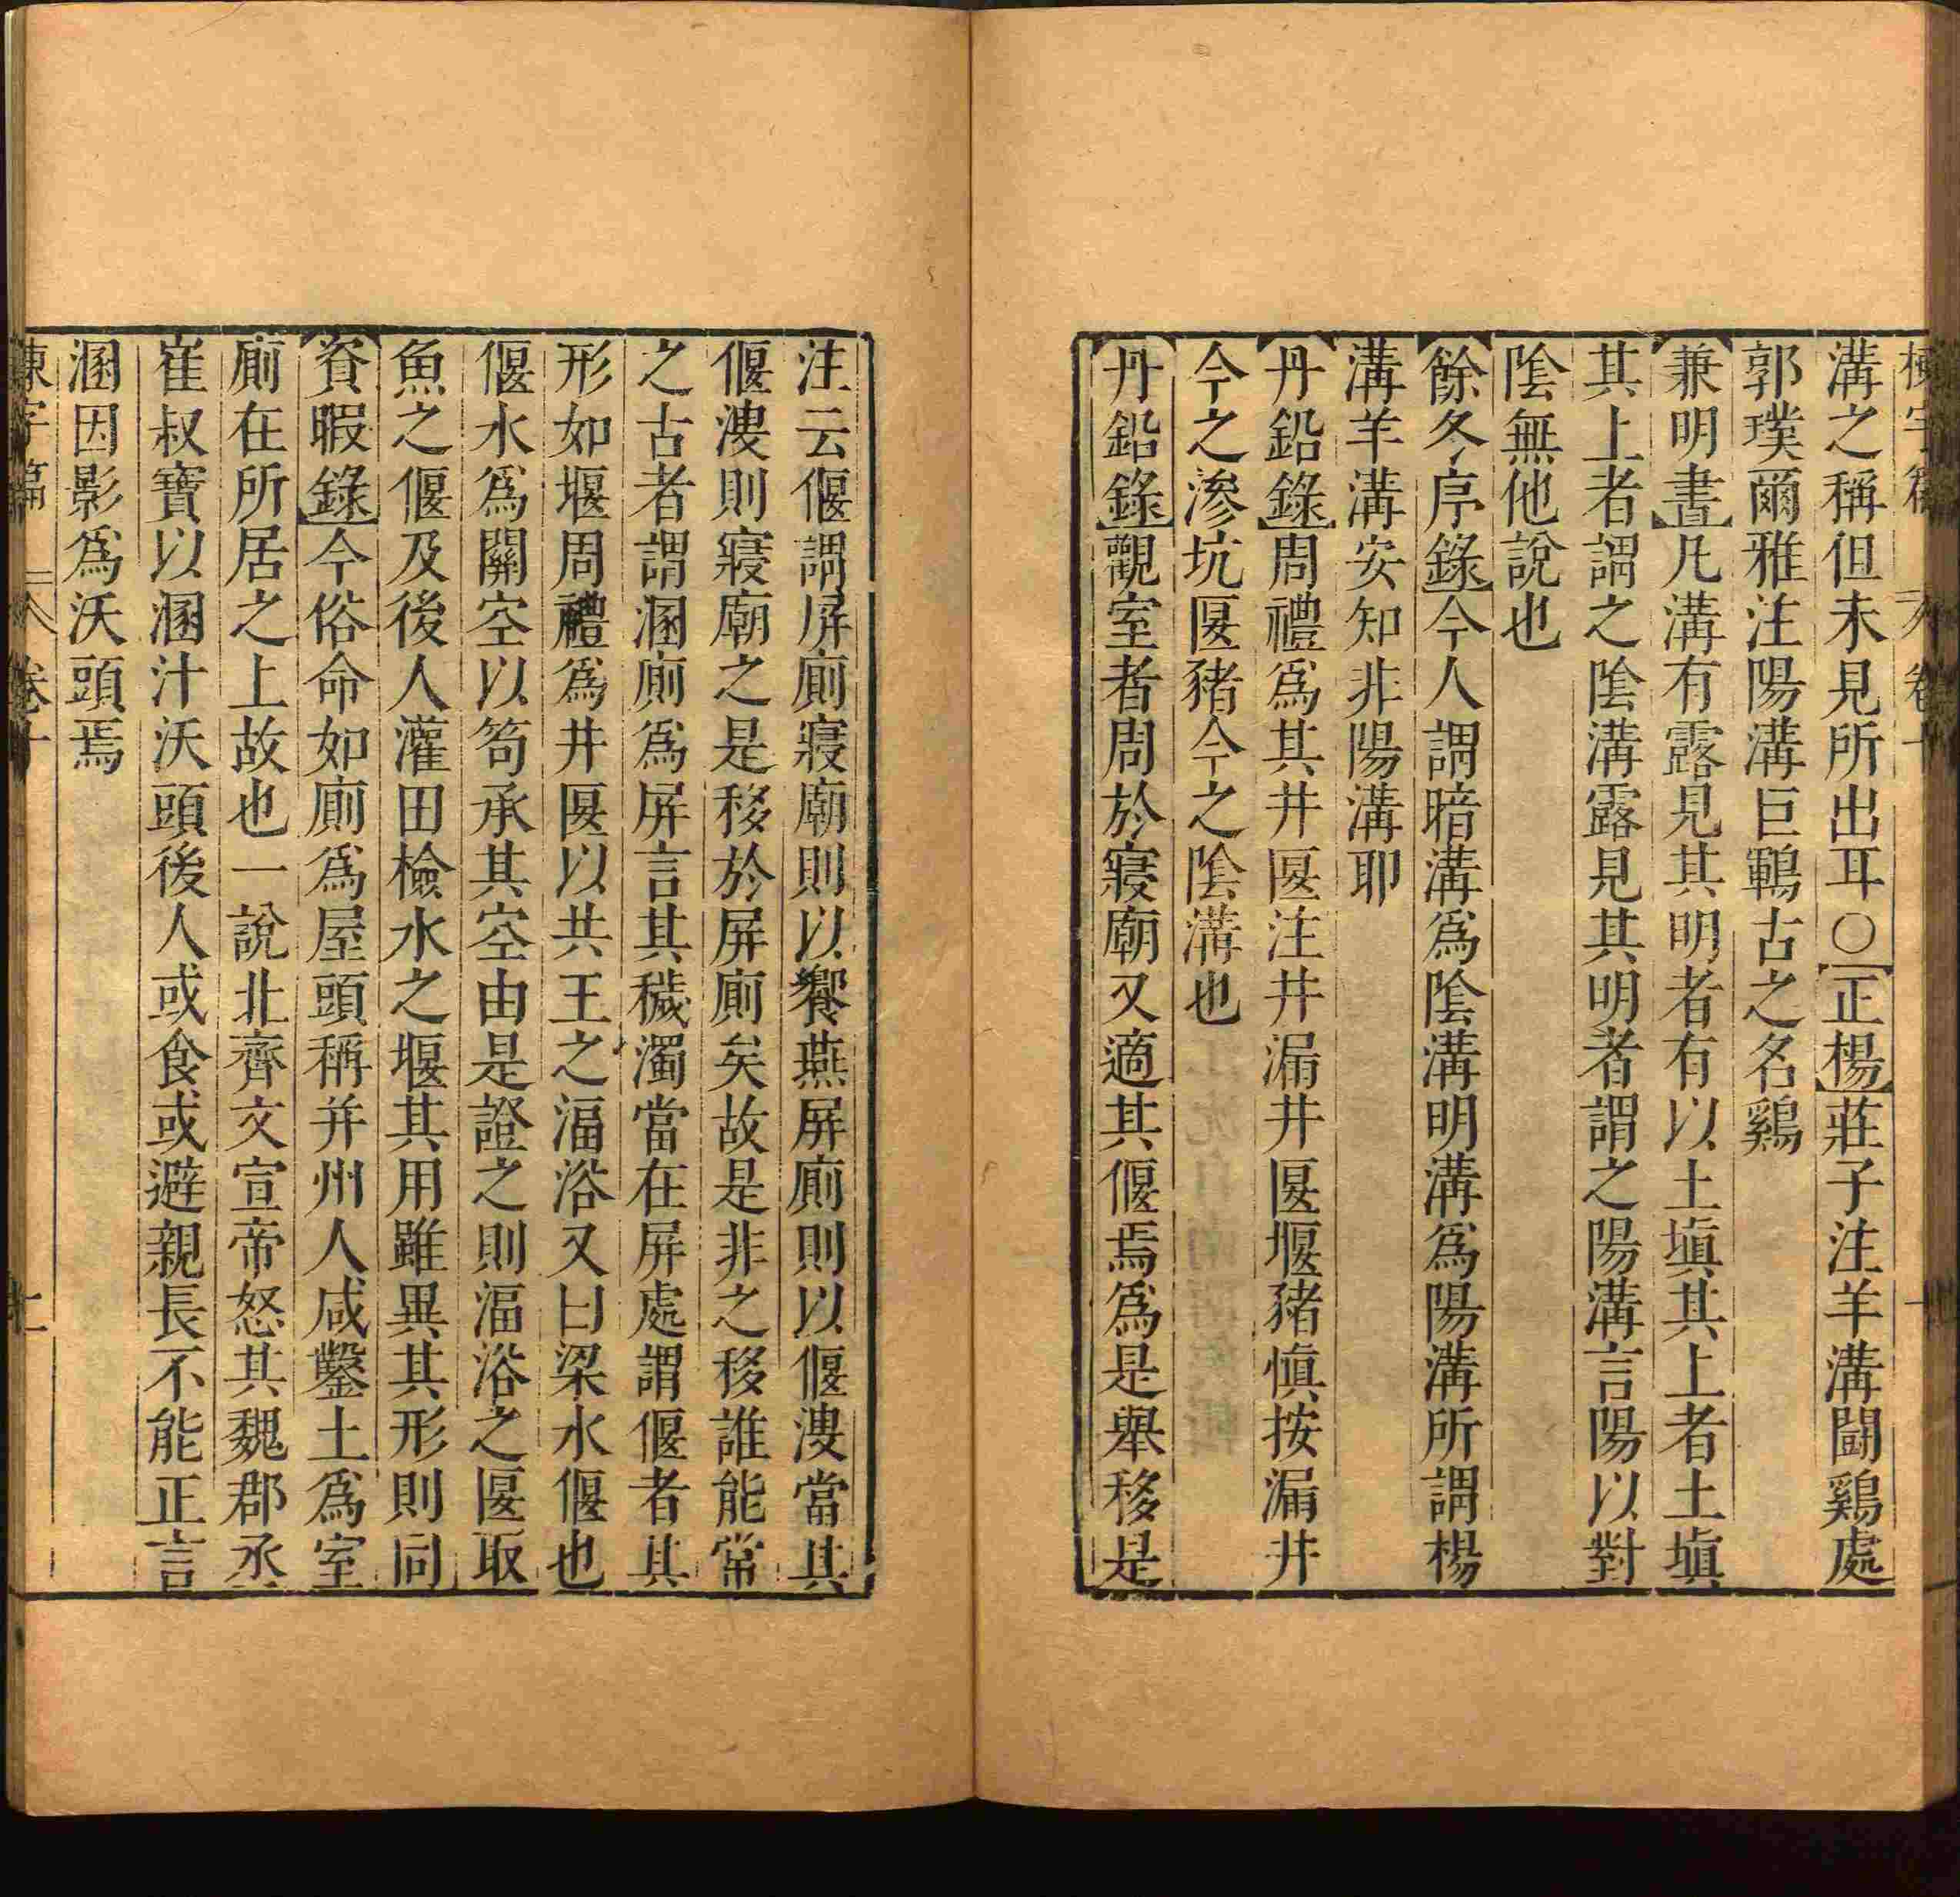 溝之稱但未見所出耳○正楊莊子注羊溝鬬鷄處
郭璞爾雅注陽溝巨鶤古之名鷄
兼明書凡溝有露見其明者有以土塡其上者土塡
其上者謂之陰溝露見其明者謂之陽溝言陽以對
陰無他說也
餘冬序錄今人謂暗溝爲陰溝明溝爲陽溝所謂楊
溝羊溝安知非陽溝耶
丹鉛錄周禮爲其井匽注井漏井匽堰豬愼按漏井
今之滲坑匽豬今之陰溝也
丹鉛錄觀室者周於寢廟又適其偃焉爲是舉移是
注云偃謂屏廁寢廟則以饗燕屏廁則以偃溲當其
偃溲則寢廟之是移於屏廁矣故是非之移誰能常
之古者謂溷廁爲屏言其穢濁當在屏處謂偃者其
形如堰周禮爲井匽以共王之湢浴又曰梁水偃也
偃水爲關空以笱承其空由是證之則湢浴之匽取
魚之偃及後人灌田檢水之堰其用雖異其形則同
資暇錄今俗命如廁爲屋頭稱并州人咸鑿土爲室
廁在所居之上故也一說北齊文宣帝怒其魏郡丞
崔叔寶以溷汁沃頭後人或食或避親長不能正言
溷因影爲沃頭焉
卷十